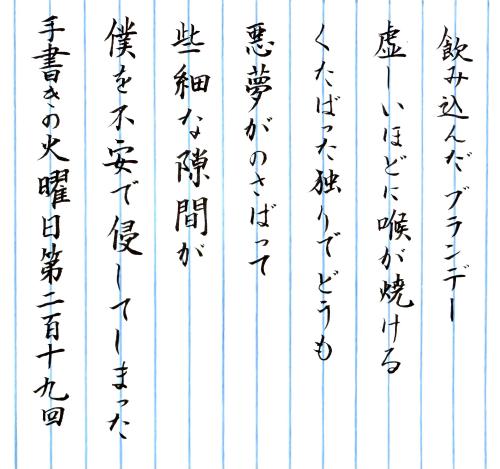 飲み込んだブランデー
虚しいほどに喉が焼ける
くたばった独りでどうも
悪夢がのさばって
些細な隙間が
僕を不安で侵してしまった
手書きの火曜日第二百十九回